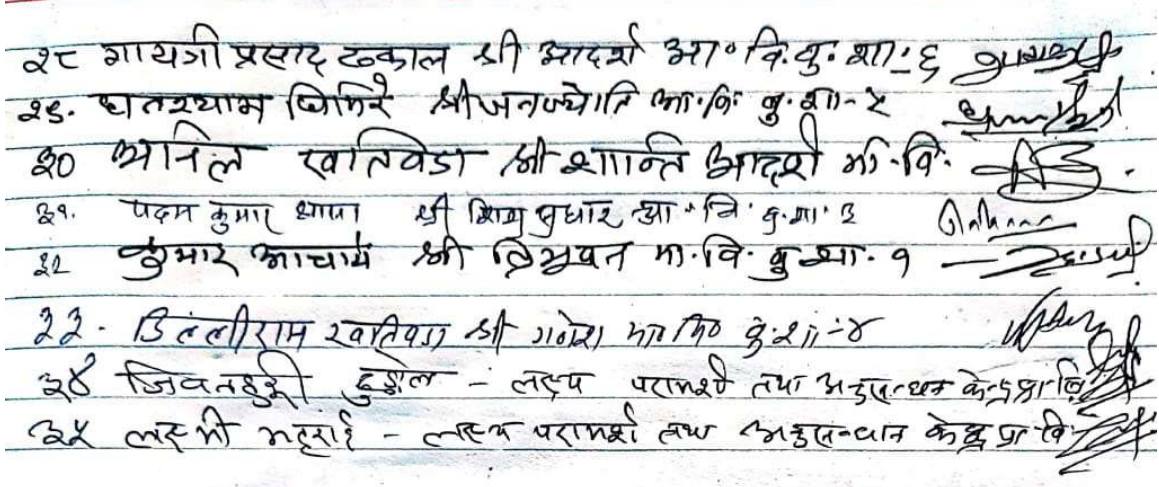 २८ गायत्री प्रसाद ढकाल श्री आदर्श आ॰ वि. कु. शा.- ६
२९. घनश्याम घिमिरे श्री जनज्योति मा. वि. कु. शा - ५
३० अनिल खतिवडा श्री शान्ति आदर्श मा. वि.
३१. पदम कुमार थापा श्री शिशु सुधार आ. वि. कु. शा. ३
३२ कुमार आचार्य श्री त्रिभुवन मा. वि. कु. शा. १
३३. डिल्लीराम खतिवडा श्री गणेश मा वि कु. शा -४
३४ जिवनहरी - लक्ष्य परामर्श तथा अनुसन्धान केन्द्र प्रा लि
३५ लक्ष्मी भट्टराई - लक्ष्य परामर्श तथा अनुसन्धान केन्द्र प्रा लि